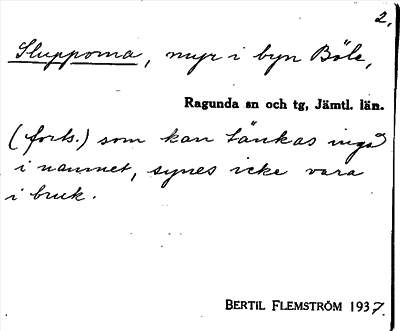 2.
Slupporna, myr i byn Böle,
Ragunda sn och tg, Jämtl. län.
(forts.) som kan tänkas ingå
i namnet, synes icke vara
i bruk.
BERTIL FLEMSTRÖM 1937.